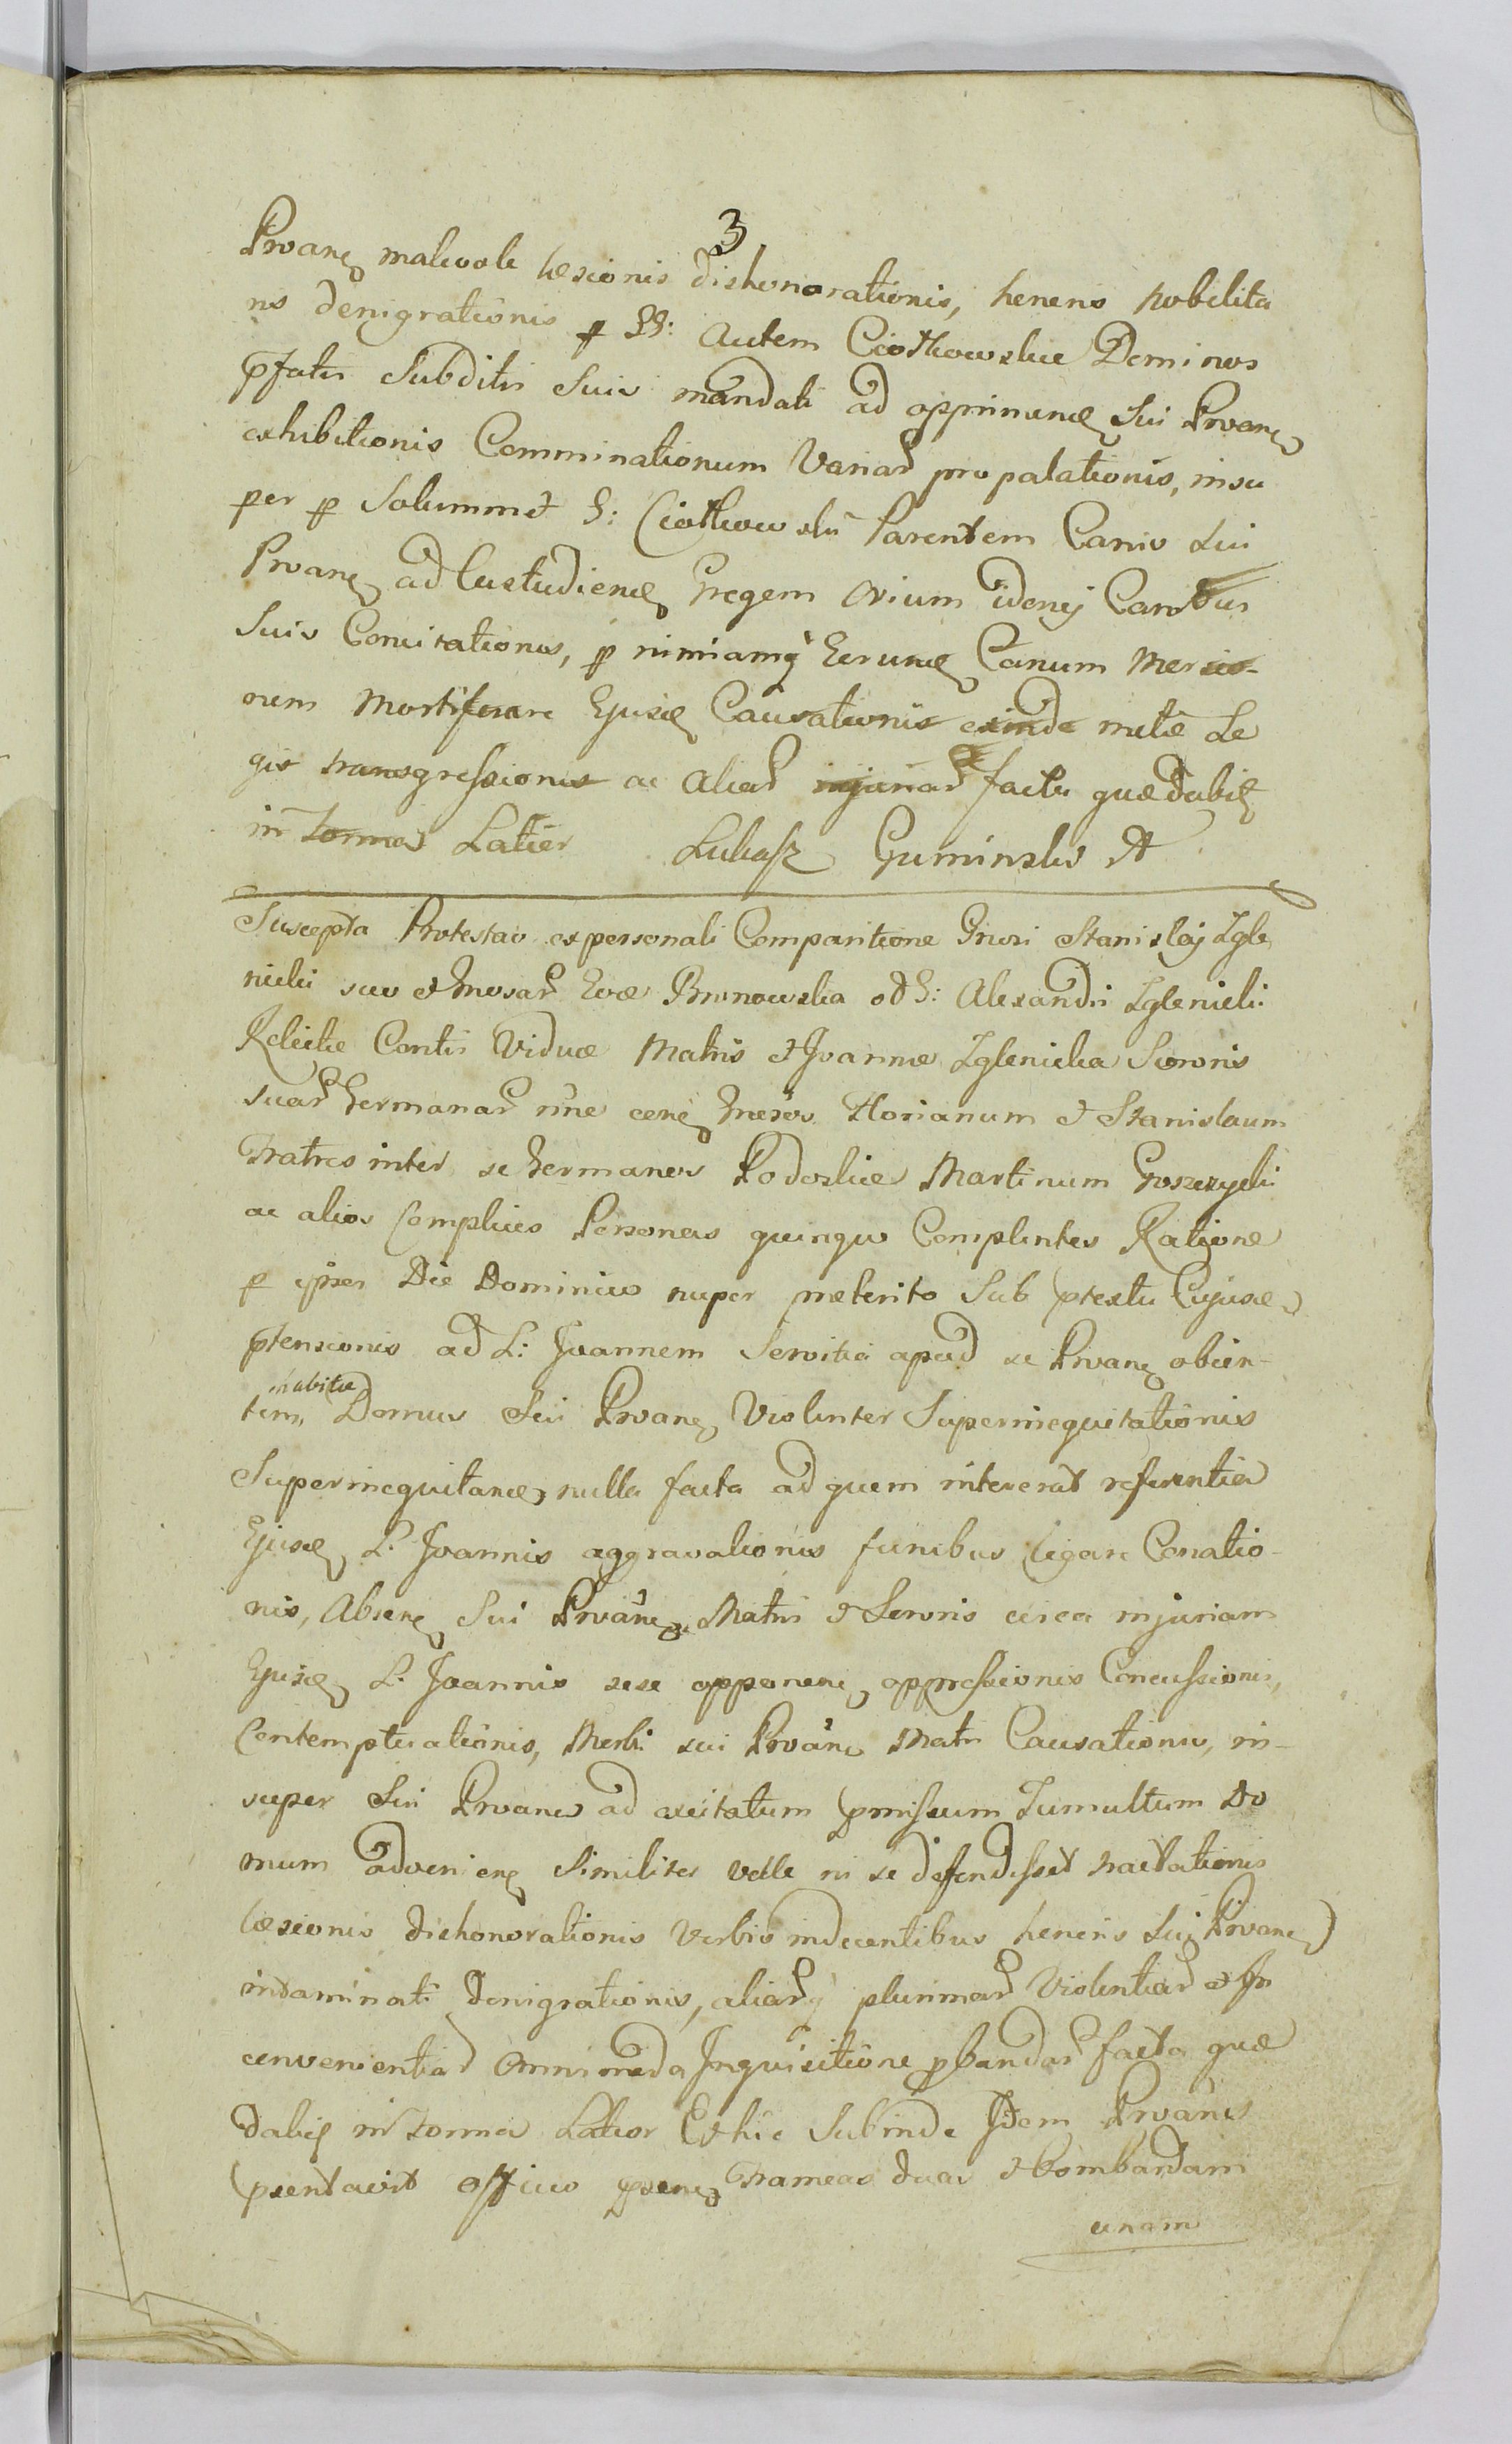 3
Prvane malevole læsionis dishonorationis, honeris nobilita
nis denigrationis p GG: autem Ciotkowskie Dominos
pfatis Subditis Suis mandati ad opprimend Sui Prvane
exhibitionis Comminationum Variar propalationis, insu
per p Solummet G: Ciotkowski Parentem Canis Sui
Prvane ad Custodiend Gregem Ovium idonej Canibus
Suis Concitationis, p nimiamq Eerund Canum Morsio-
nem Mortificare Ejusd Causationis exinde metæ Le
gis transgressionis ac aliar injuriar facta quæ dabit
in forma Latior Lukasz Guminski A
Suscepta Protestao ex personali Comparitione Gnrosi Stanislaj Zgle
nicki suo et Gnrosar Evæ Brunowska od G: Alexandri Zglenicki
Relictæ Contis Viduæ Matris et Joannæ Zglenicka Sororis
suar Germanar nne cone Gnrosos Florianum et Stanislaum
Fratres inter se Germanos Podoskie Martinum Groszczycki
ac alios Complices Personas quinque Complentes Ratione
p ipsos Die Dominico nuper præterito Sub ptextu Cujusd
ptensionis ad L: Joannem Servitia apud se Prvane obien-
inhabitæ
tem, Domus Sui Prvane Violenter Superinequitationis
Superinequitand nulla facta ad quem intererat referentia
Ejusd L: Joannis aggravationis funibus ligare Conatio-
nis, Absene Sui Prvane Matris et Sororis circa injuriam
Ejusd L: Joannis sese opponene oppressionis Concussionis,
Contemptuationis, Morbi sui Prvane Matri Causationis, in-
super Sui Prvane ad excitatum pmissum Tumultum Do
mum advenien Similiter velle ni se defendisset tractationis
læsionis dishonorationis Verbis indecentibus honeris Sui Prvane
intaminati denigrationis, aliarq plurimar Violentiar et In
convenientiar omnimoda Inquisitione pbandar facta quæ
dabit in forma Latior Et hic Subinde Idem Prvane
psentavit officio psene Frameas duas et bombardam
unam